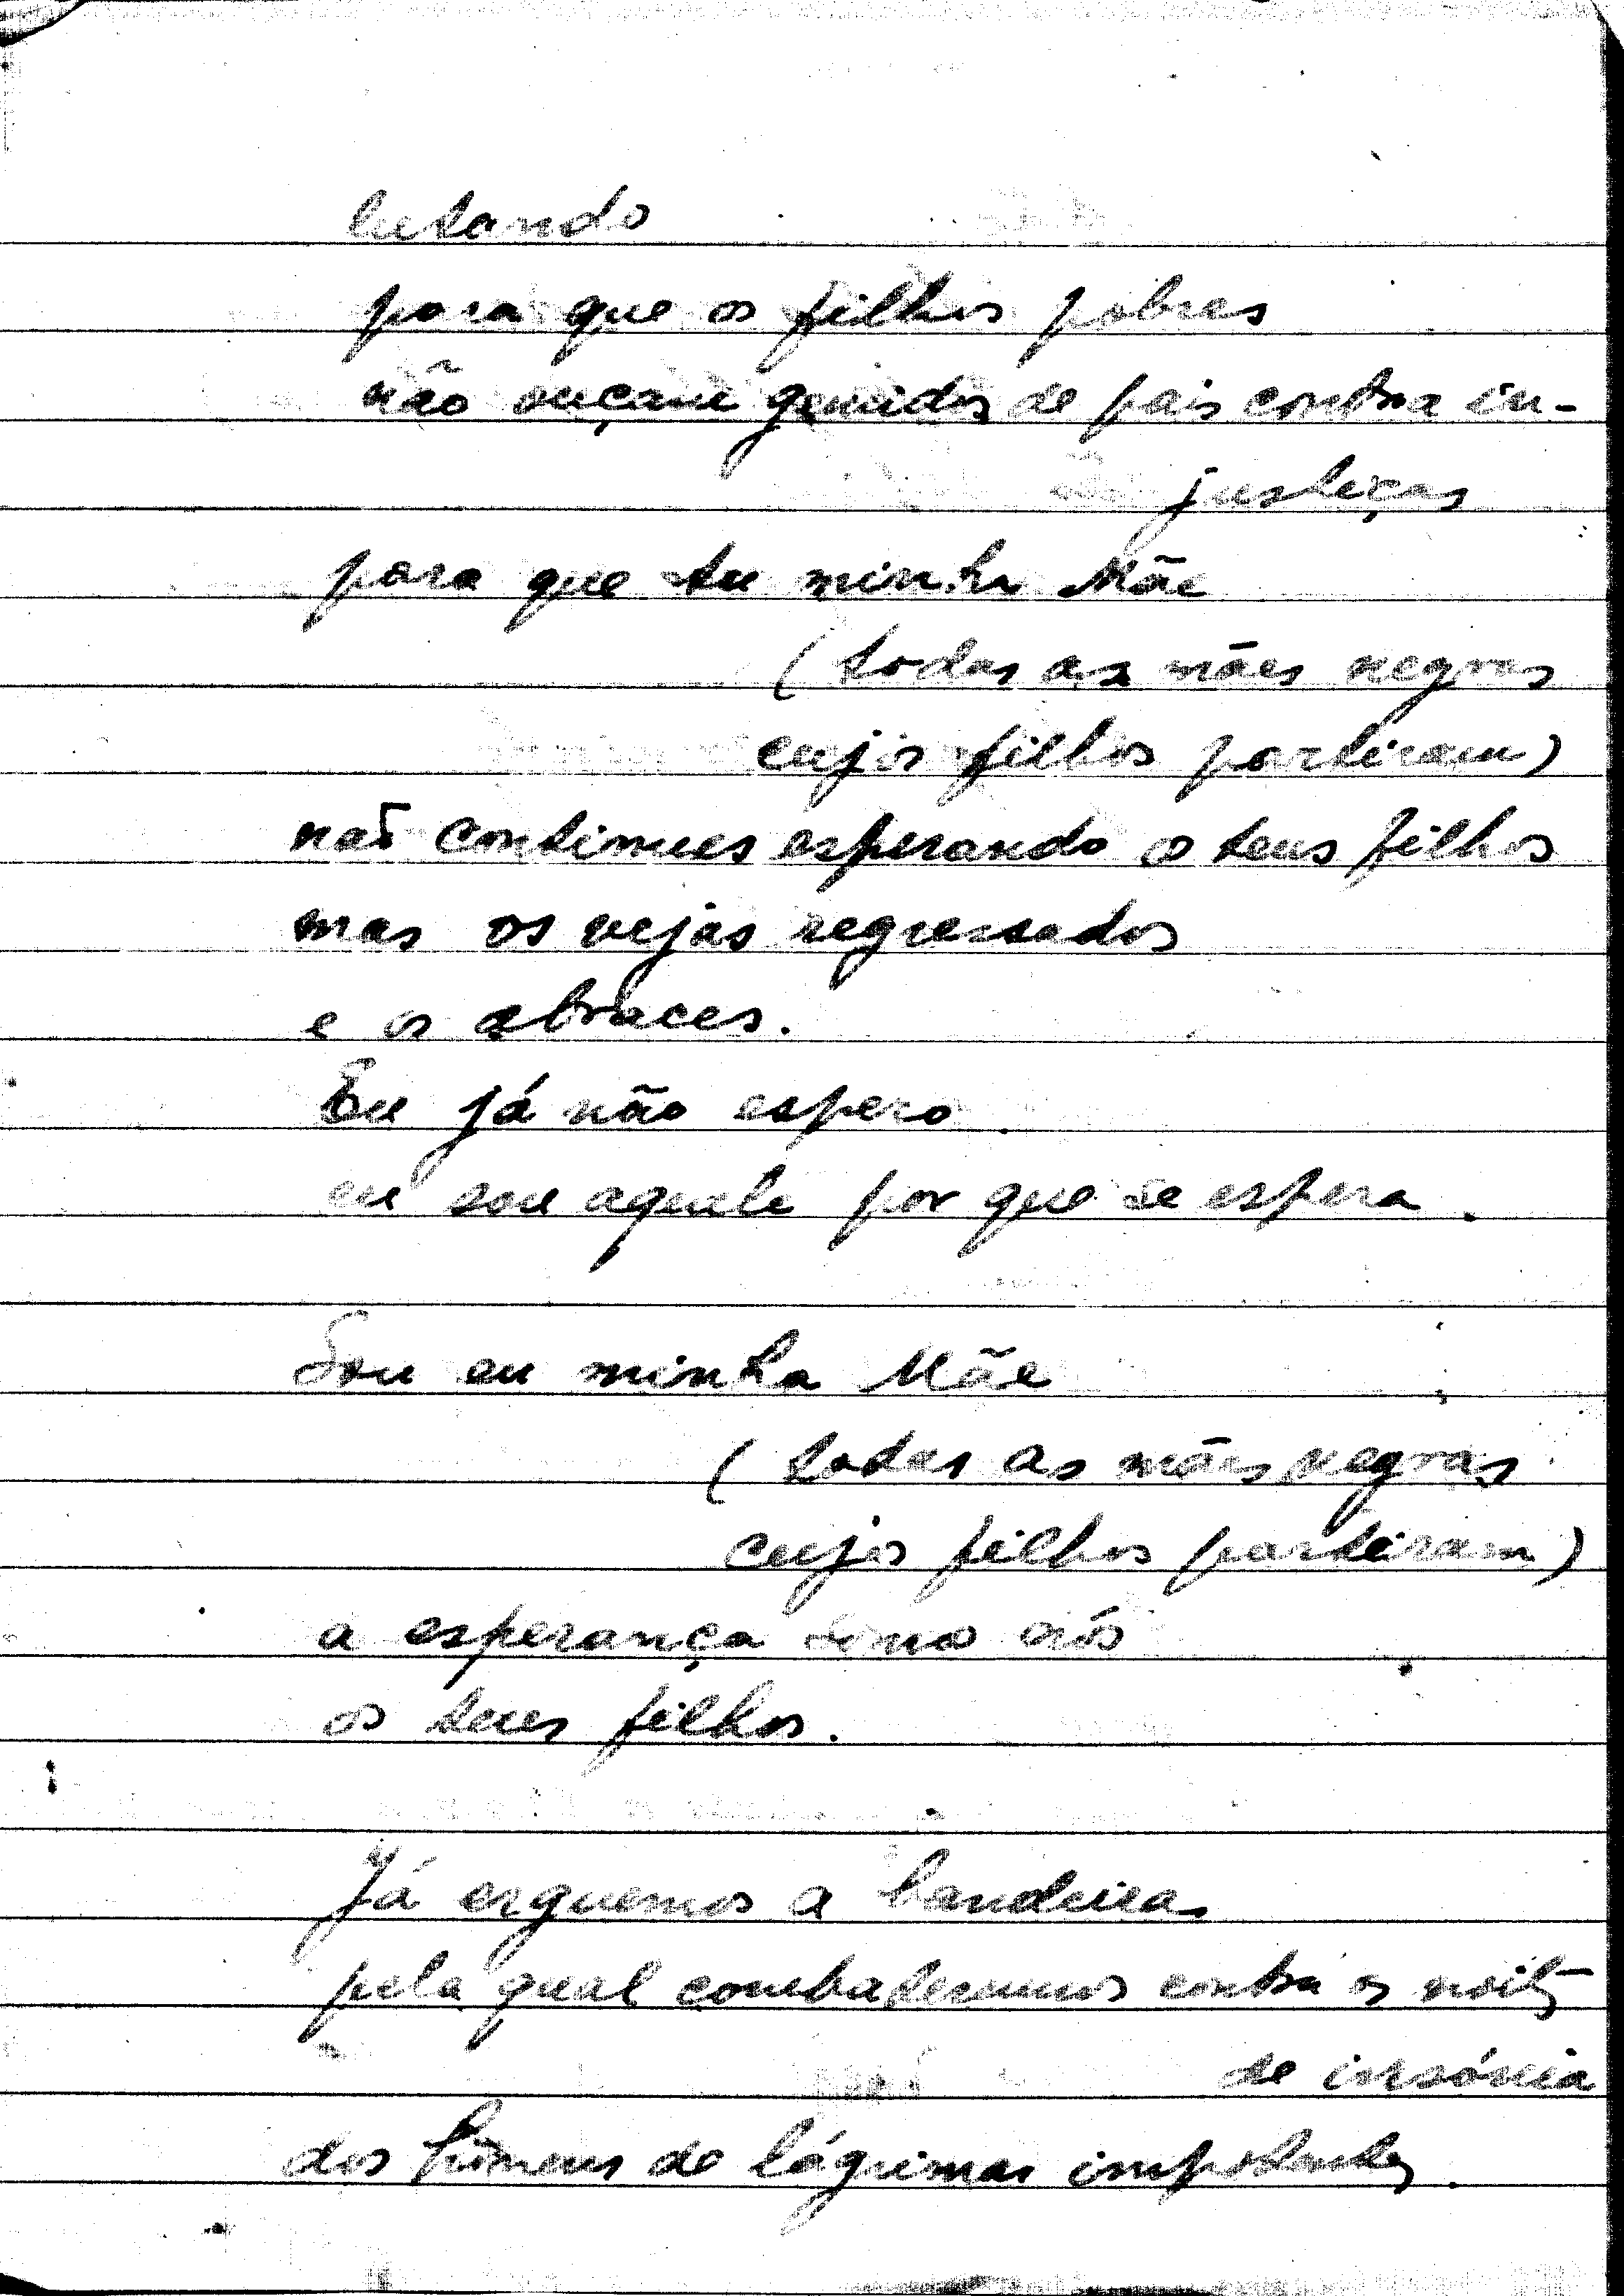 lutando
para que os filhos pobres
não ouçam gemidos de pais contra in-
justiças
para que tu minha Mãe
(todas as mães negras
cujos filhos partiram)
não continues esperando o teus filhos
mas os vejas regressados
e os abraces.
Eu já não espero
eu sou aquele por que se espera.
Sou eu minha Mãe
(todas as mães negras
cujos filhos partiram)
a esperança somos nós
os teus filhos.
Já erguemos a bandeira
pela qual combateremos contra as noites
de insónia
dos homens de lágrimas impotentes.